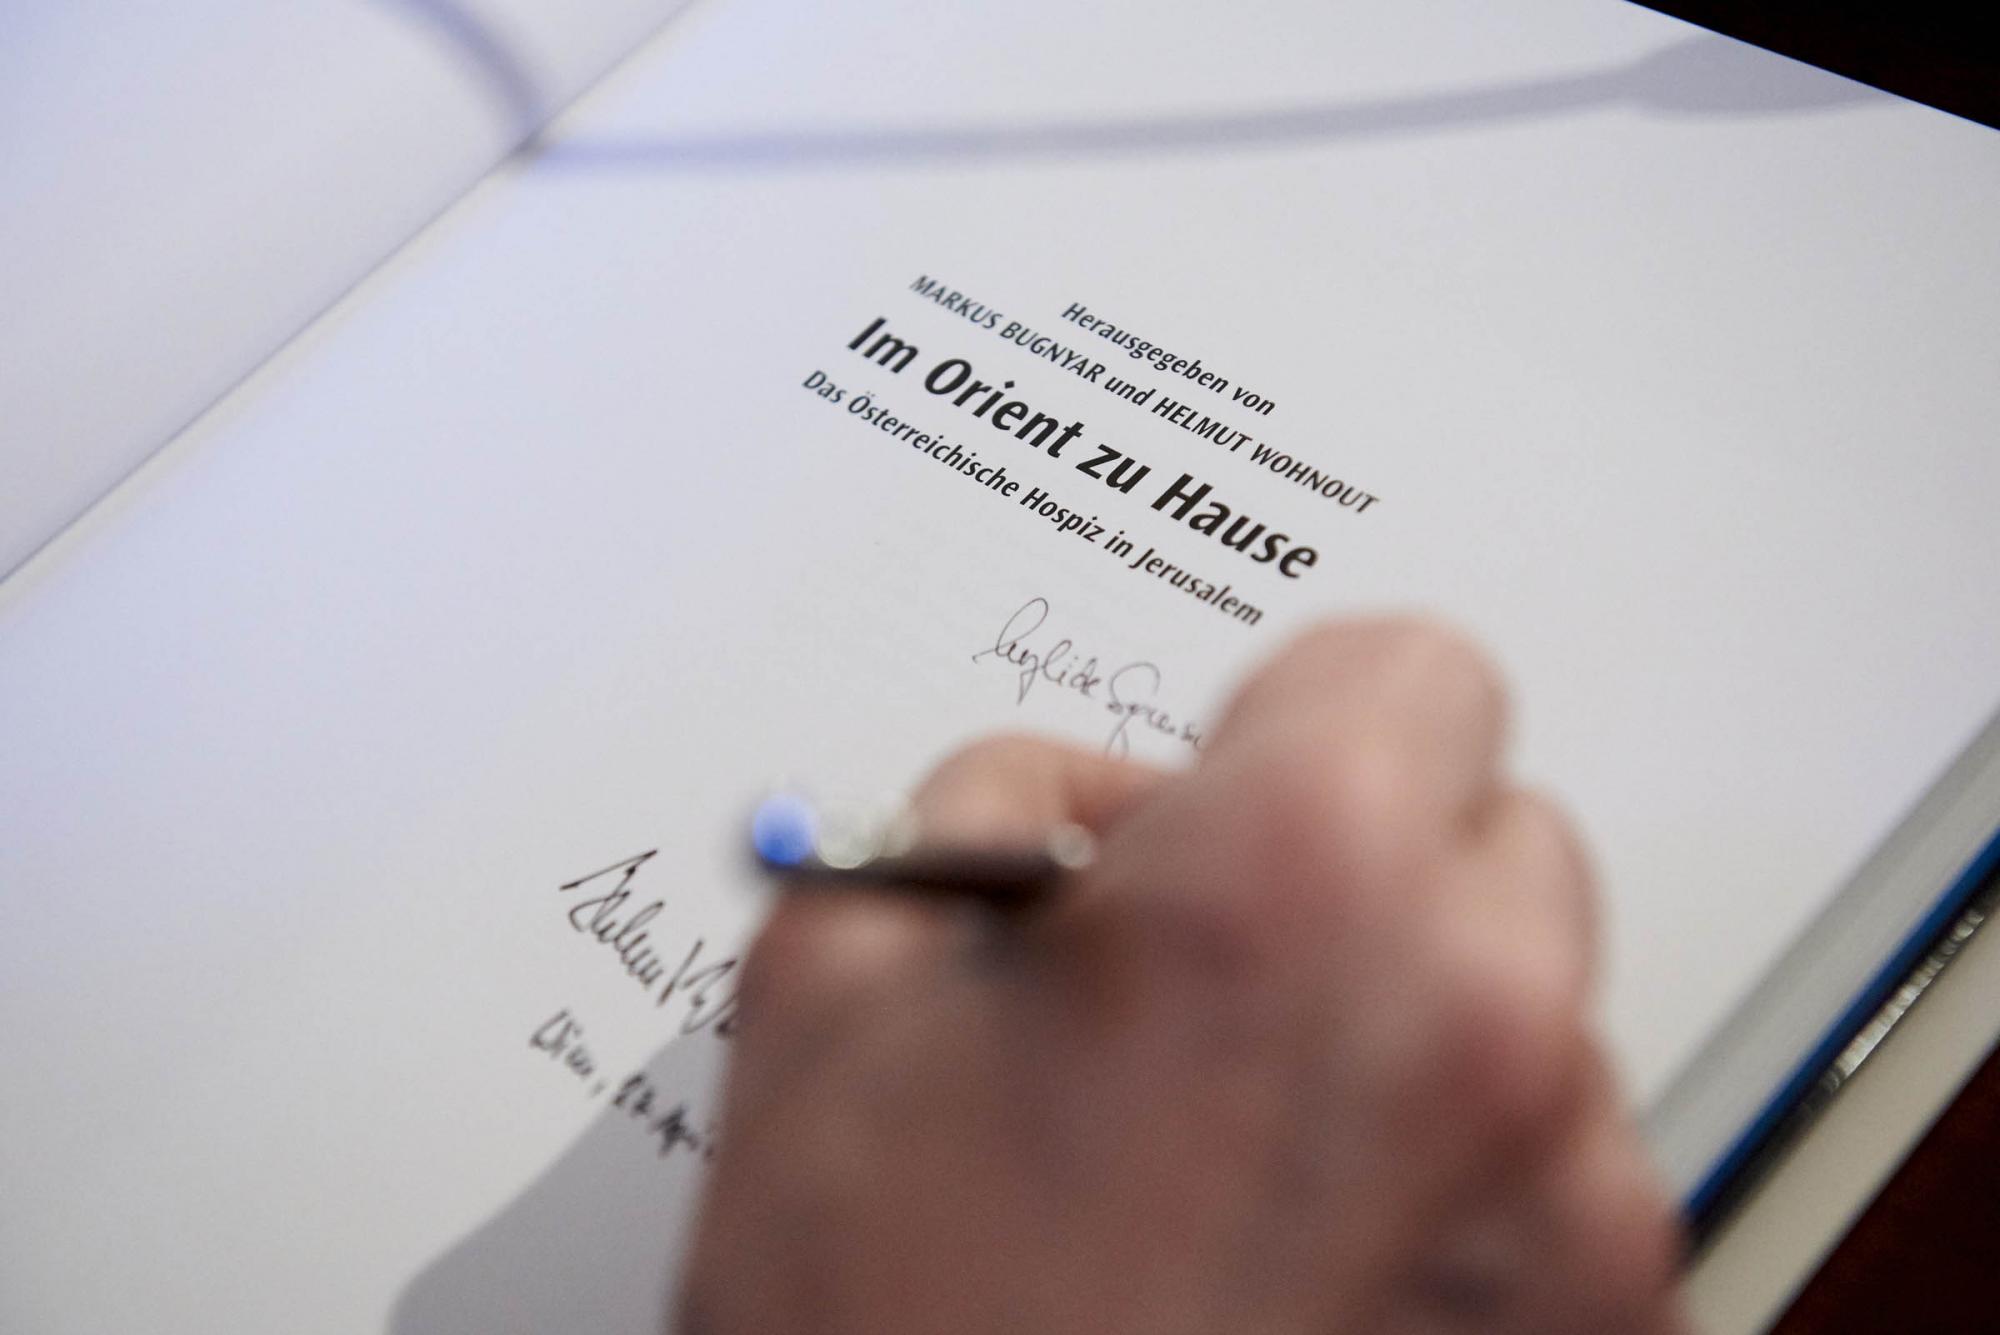 Herausgegeben von
MARKUS BUGNYAR und HELMUT WOHNOUT
Im Orient zu Hause
Das Österreichische Hospiz in Jerusalem
Wien,